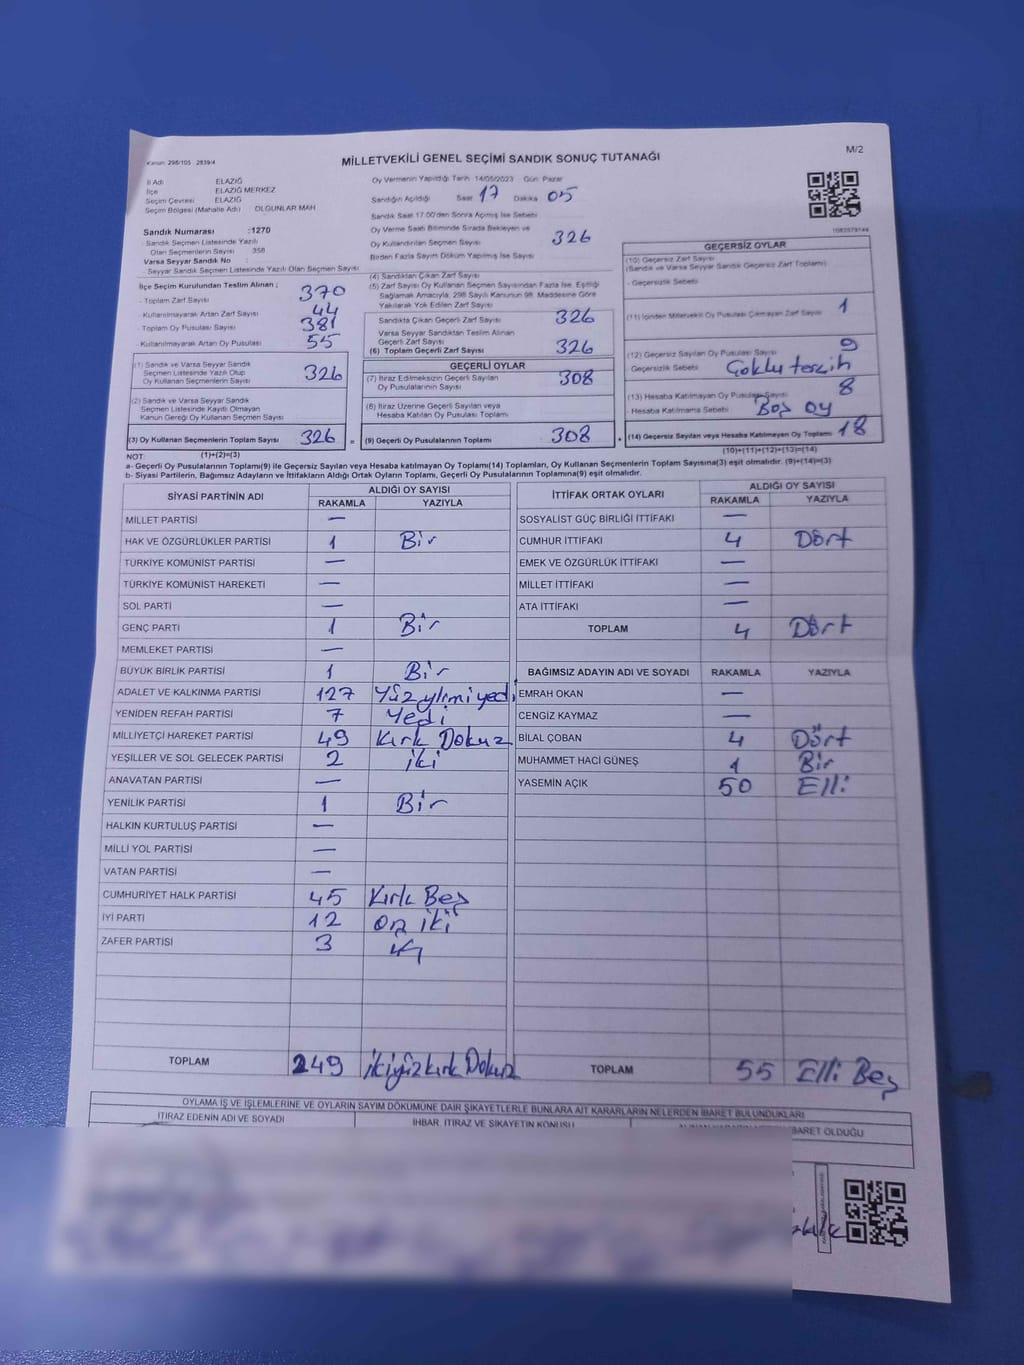 Kanun: 298/105 - 2839/4
MİLLETVEKİLİ GENEL SEÇİMİ SANDIK SONUÇ TUTANAĞI
M/2
İl Adı ELAZIĞ
İlçe ELAZIĞ MERKEZ
Seçim Çevresi ELAZIĞ
Seçim Bölgesi (Mahalle Adı) OLGUNLAR MAH
Sandık Numarası :1270
- Sandık Seçmen Listesinde Yazılı
Olan Seçmenlerin Sayısı 358
Varsa Seyyar Sandık No :
- Seyyar Sandık Seçmen Listesinde Yazılı Olan Seçmen Sayısı
İlçe Seçim Kurulundan Teslim Alınan ;
- Toplam Zarf Sayısı 370
- Kullanılmayarak Artan Zarf Sayısı 44
- Toplam Oy Pusulası Sayısı 381
- Kullanılmayarak Artan Oy Pusulası 55
(1) Sandık ve Varsa Seyyar Sandık
Seçmen Listesinde Yazılı Olup
Oy Kullanan Seçmenlerin Sayısı 326
(2) Sandık ve Varsa Seyyar Sandık
Seçmen Listesinde Kayıtlı Olmayan
Kanun Gereği Oy Kullanan Seçmen Sayısı
(3) Oy Kullanan Seçmenlerin Toplam Sayısı 326 =
Oy Vermenin Yapıldığı Tarih 14/05/2023 Gün Pazar
Sandığın Açıldığı Saat 17 Dakika 05
Sandık Saat 17.00'den Sonra Açılmış İse Sebebi
Oy Verme Saati Bitiminde Sırada Bekleyen ve
Oy Kullandırılan Seçmen Sayısı 326
Birden Fazla Sayım Döküm Yapılmış İse Sayısı
(4) Sandıktan Çıkan Zarf Sayısı
(5) Zarf Sayısı Oy Kullanan Seçmen Sayısından Fazla İse, Eşitliği
Sağlamak Amacıyla, 298 Sayılı Kanunun 98. Maddesine Göre
Yakılarak Yok Edilen Zarf Sayısı
Sandıkta Çıkan Geçerli Zarf Sayısı 326
Varsa Seyyar Sandıktan Teslim Alınan
Geçerli Zarf Sayısı
(6) Toplam Geçerli Zarf Sayısı 326
GEÇERLİ OYLAR
(7) İtiraz Edilmeksizin Geçerli Sayılan
Oy Pusulalarının Sayısı 308
(8) İtiraz Üzerine Geçerli Sayılan veya
Hesaba Katılan Oy Pusulası Toplamı
(9) Geçerli Oy Pusulalarının Toplamı 308 +
1082079144
GEÇERSİZ OYLAR
(10) Geçersiz Zarf Sayısı
(Sandık ve Varsa Seyyar Sandık Geçersiz Zarf Toplamı)
- Geçersizlik Sebebi
(11) İçinden Milletvekili Oy Pusulası Çıkmayan Zarf Sayısı 1
(12) Geçersiz Sayılan Oy Pusulası Sayısı 9
Geçersizlik Sebebi Çoklu tercih
(13) Hesaba Katılmayan Oy Pusulası Sayısı 8
- Hesaba Katılmama Sebebi Boş oy
(14) Geçersiz Sayılan veya Hesaba Katılmayan Oy Toplamı 18
NOT: (1)+(2)=(3) (10)+(11)+(12)+(13)=(14)
a- Geçerli Oy Pusulalarının Toplamı(9) ile Geçersiz Sayılan veya Hesaba katılmayan Oy Toplamı(14) Toplamları, Oy Kullanan Seçmenlerin Toplam Sayısına(3) eşit olmalıdır. (9)+(14)=(3)
b- Siyasi Partilerin, Bağımsız Adayların ve İttifakların Aldığı Ortak Oyların Toplamı, Geçerli Oy Pusulalarının Toplamına(9) eşit olmalıdır.
SİYASİ PARTİNİN ADI ALDIĞI OY SAYISI
RAKAMLA YAZIYLA
MİLLET PARTİSİ —
HAK VE ÖZGÜRLÜKLER PARTİSİ 1 Bir
TÜRKİYE KOMÜNİST PARTİSİ —
TÜRKİYE KOMÜNİST HAREKETİ —
SOL PARTİ —
GENÇ PARTİ 1 Bir
MEMLEKET PARTİSİ —
BÜYÜK BİRLİK PARTİSİ 1 Bir
ADALET VE KALKINMA PARTİSİ 127 Yüz yirmi yedi
YENİDEN REFAH PARTİSİ 7 Yedi
MİLLİYETÇİ HAREKET PARTİSİ 49 Kırk Dokuz
YEŞİLLER VE SOL GELECEK PARTİSİ 2 iki
ANAVATAN PARTİSİ —
YENİLİK PARTİSİ 1 Bir
HALKIN KURTULUŞ PARTİSİ —
MİLLİ YOL PARTİSİ —
VATAN PARTİSİ —
CUMHURİYET HALK PARTİSİ 45 Kırk Beş
İYİ PARTİ 12 on iki
ZAFER PARTİSİ 3
TOPLAM 249 ikiyüz kırk Dokuz
İTTİFAK ORTAK OYLARI ALDIĞI OY SAYISI
RAKAMLA YAZIYLA
SOSYALİST GÜÇ BİRLİĞİ İTTİFAKI —
CUMHUR İTTİFAKI 4 Dört
EMEK VE ÖZGÜRLÜK İTTİFAKI —
MİLLET İTTİFAKI —
ATA İTTİFAKI —
TOPLAM 4 Dört
BAĞIMSIZ ADAYIN ADI VE SOYADI RAKAMLA YAZIYLA
EMRAH OKAN —
CENGİZ KAYMAZ —
BİLAL ÇOBAN 4 Dört
MUHAMMET HACİ GÜNEŞ 1 Bir
YASEMİN AÇIK 50 Elli
TOPLAM 55 Elli Beş
OYLAMA İŞ VE İŞLEMLERİNE VE OYLARIN SAYIM DÖKÜMÜNE DAİR ŞİKAYETLERLE BUNLARA AİT KARARLARIN NELERDEN İBARET BULUNDUKLARI
İTİRAZ EDENİN ADI VE SOYADI
İHBAR, İTİRAZ VE ŞİKAYETİN KONUSU
İBARET OLDUĞU